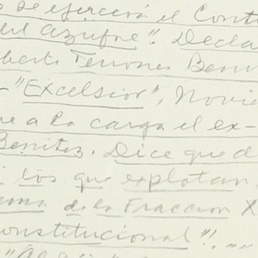 se ejerción el Cont
del Azufre". Decla
Terrones Beni
-"Excelsior", Novie
a la carga el ex-
Benitez. Dice que d
los que explotan
de la Fracción X
constitucional"!, ,,,,